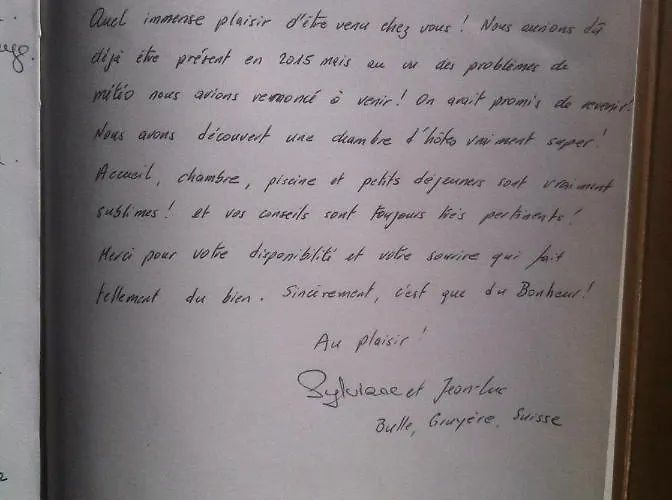 Quel immense plaisir d'être venu chez vous ! Nous aurions dû
déjà être présent en 2015 mais au vu des problèmes de
météo nous avions renoncé à venir ! On avait promis de revenir !
Nous avons découvert une chambre d'hôtes vraiment super !
Accueil, chambre, piscine et petits déjeuners sont vraiment
sublimes ! et vos conseils sont toujours très pertinents !
Merci pour votre disponibilité et votre sourire qui fait
tellement du bien. Sincèrement, c'est que du Bonheur !
Au plaisir !
Sylviane et Jean-Luc
Bulle, Gruyère, Suisse